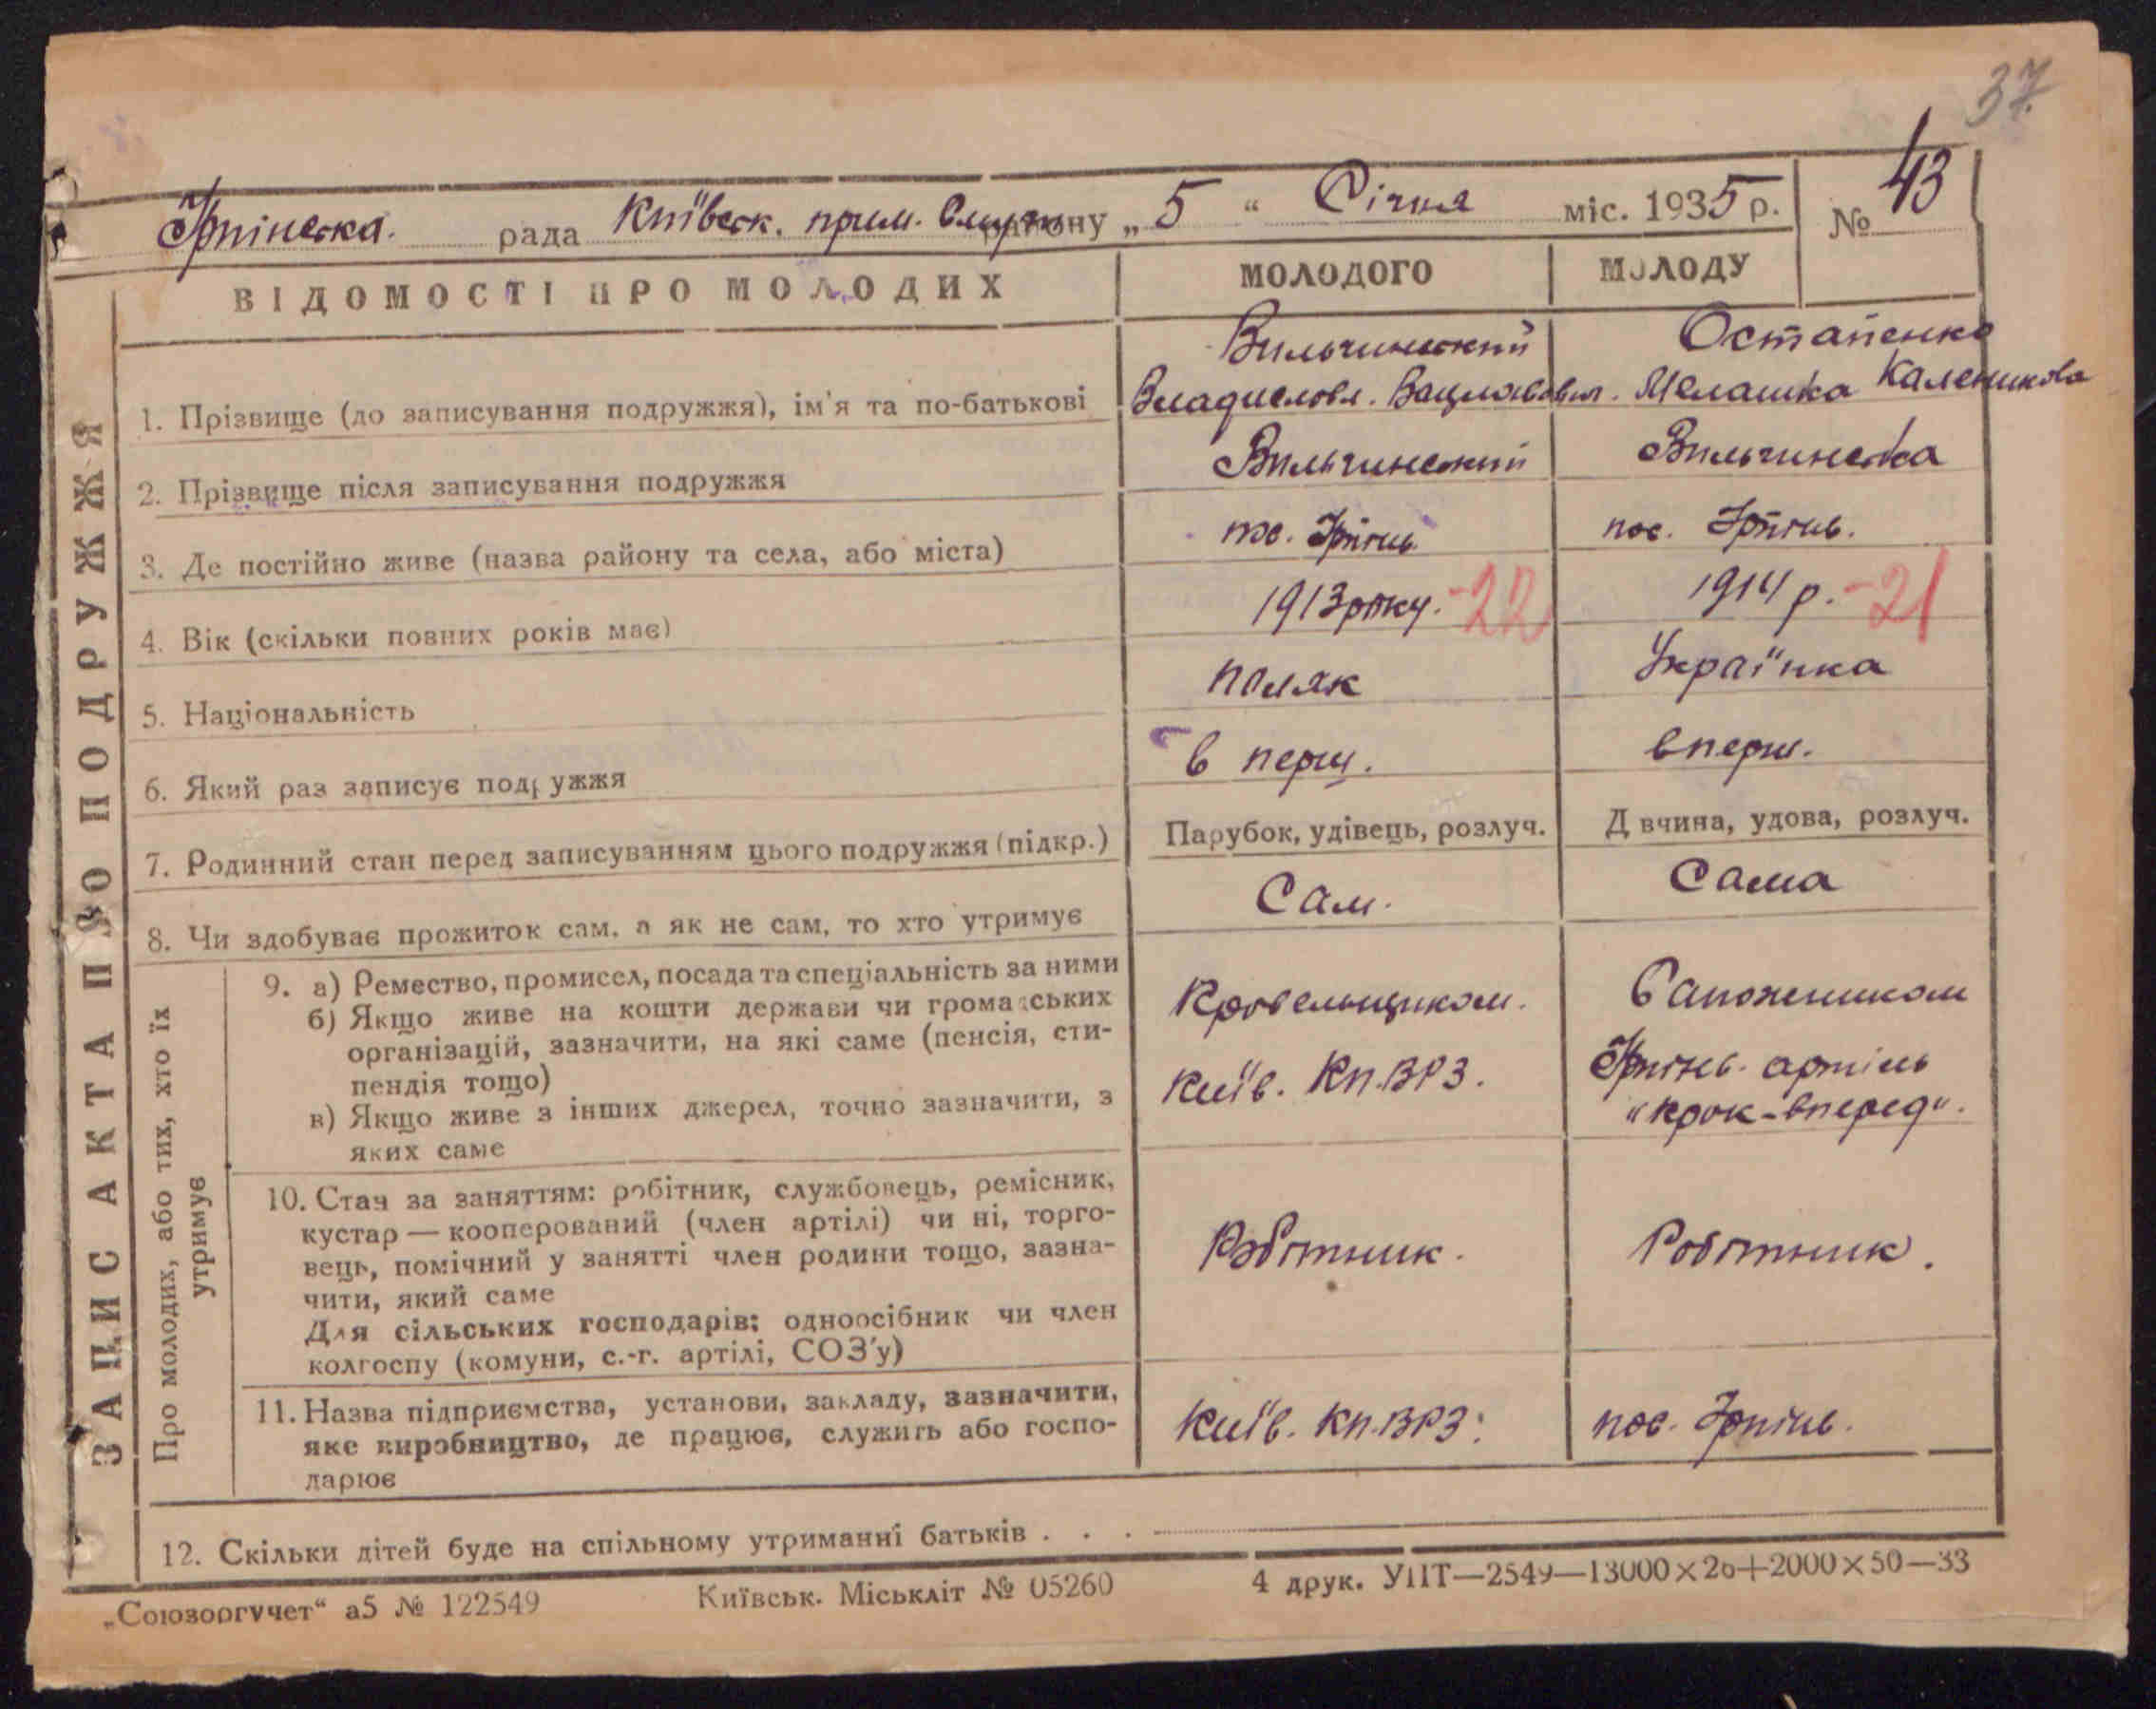 37.
Ірпінська. рада Київськ. прим. смуги району „5“ Січня міс. 1935 р. № 43
ЗАПИС АКТА ПРО ПОДРУЖЖЯ
ВІДОМОСТІ ПРО МОЛОДИХ МОЛОДОГО МОЛОДУ
Вильчинский Остапенко
1. Прізвище (до записування подружжя), ім'я та по-батькові Владиславл. Вацлавович. Мелашка Каленикова
2. Прізвище після записування подружжя Вильчинский Вильчинська
3. Де постійно живе (назва району та села, або міста) пос. Ірпінь. пос. Ірпінь.
4. Вік (скільки повних років має) 1913 року. -22 1914 р. -21
5. Національність поляк Українка
6. Який раз записує подружжя в перш. вперш.
7. Родинний стан перед записуванням цього подружжя (підкр.) Парубок, удівець, розлуч. Д вчина, удова, розлуч.
8. Чи здобуває прожиток сам, а як не сам, то хто утримує Сам. Сама
Про молодих, або тих, хто їх
утримує
9. а) Ремество, промисел, посада та спеціальність за ними
б) Якщо живе на кошти держави чи громадських
організацій, зазначити, на які саме (пенсія, сти-
пендія тощо)
в) Якщо живе з інших джерел, точно зазначити, з
яких саме
Кровельщиком.
Київ. КП.ВРЗ.
Сапожником
Ірпінь. артіль
"крок-вперед".
10. Стан за заняттям: робітник, службовець, ремісник,
кустар — кооперований (член артілі) чи ні, торго-
вець, помічний у занятті член родини тощо, зазна-
чити, який саме
Для сільських господарів: одноосібник чи член
колгоспу (комуни, с.-г. артілі, СОЗ'у)
Робітник. Робітник.
11. Назва підприємства, установи, закладу, зазначити,
яке виробництво, де працює, служить або госпо-
дарює
Київ. КП.ВРЗ. пос. Ірпінь.
12. Скільки дітей буде на спільному утриманні батьків . . .
„Союзоргучет“ а5 № 122549 Київськ. Міськліт № 05260 4 друк. УПТ—2549—13000×20+2000×50—33